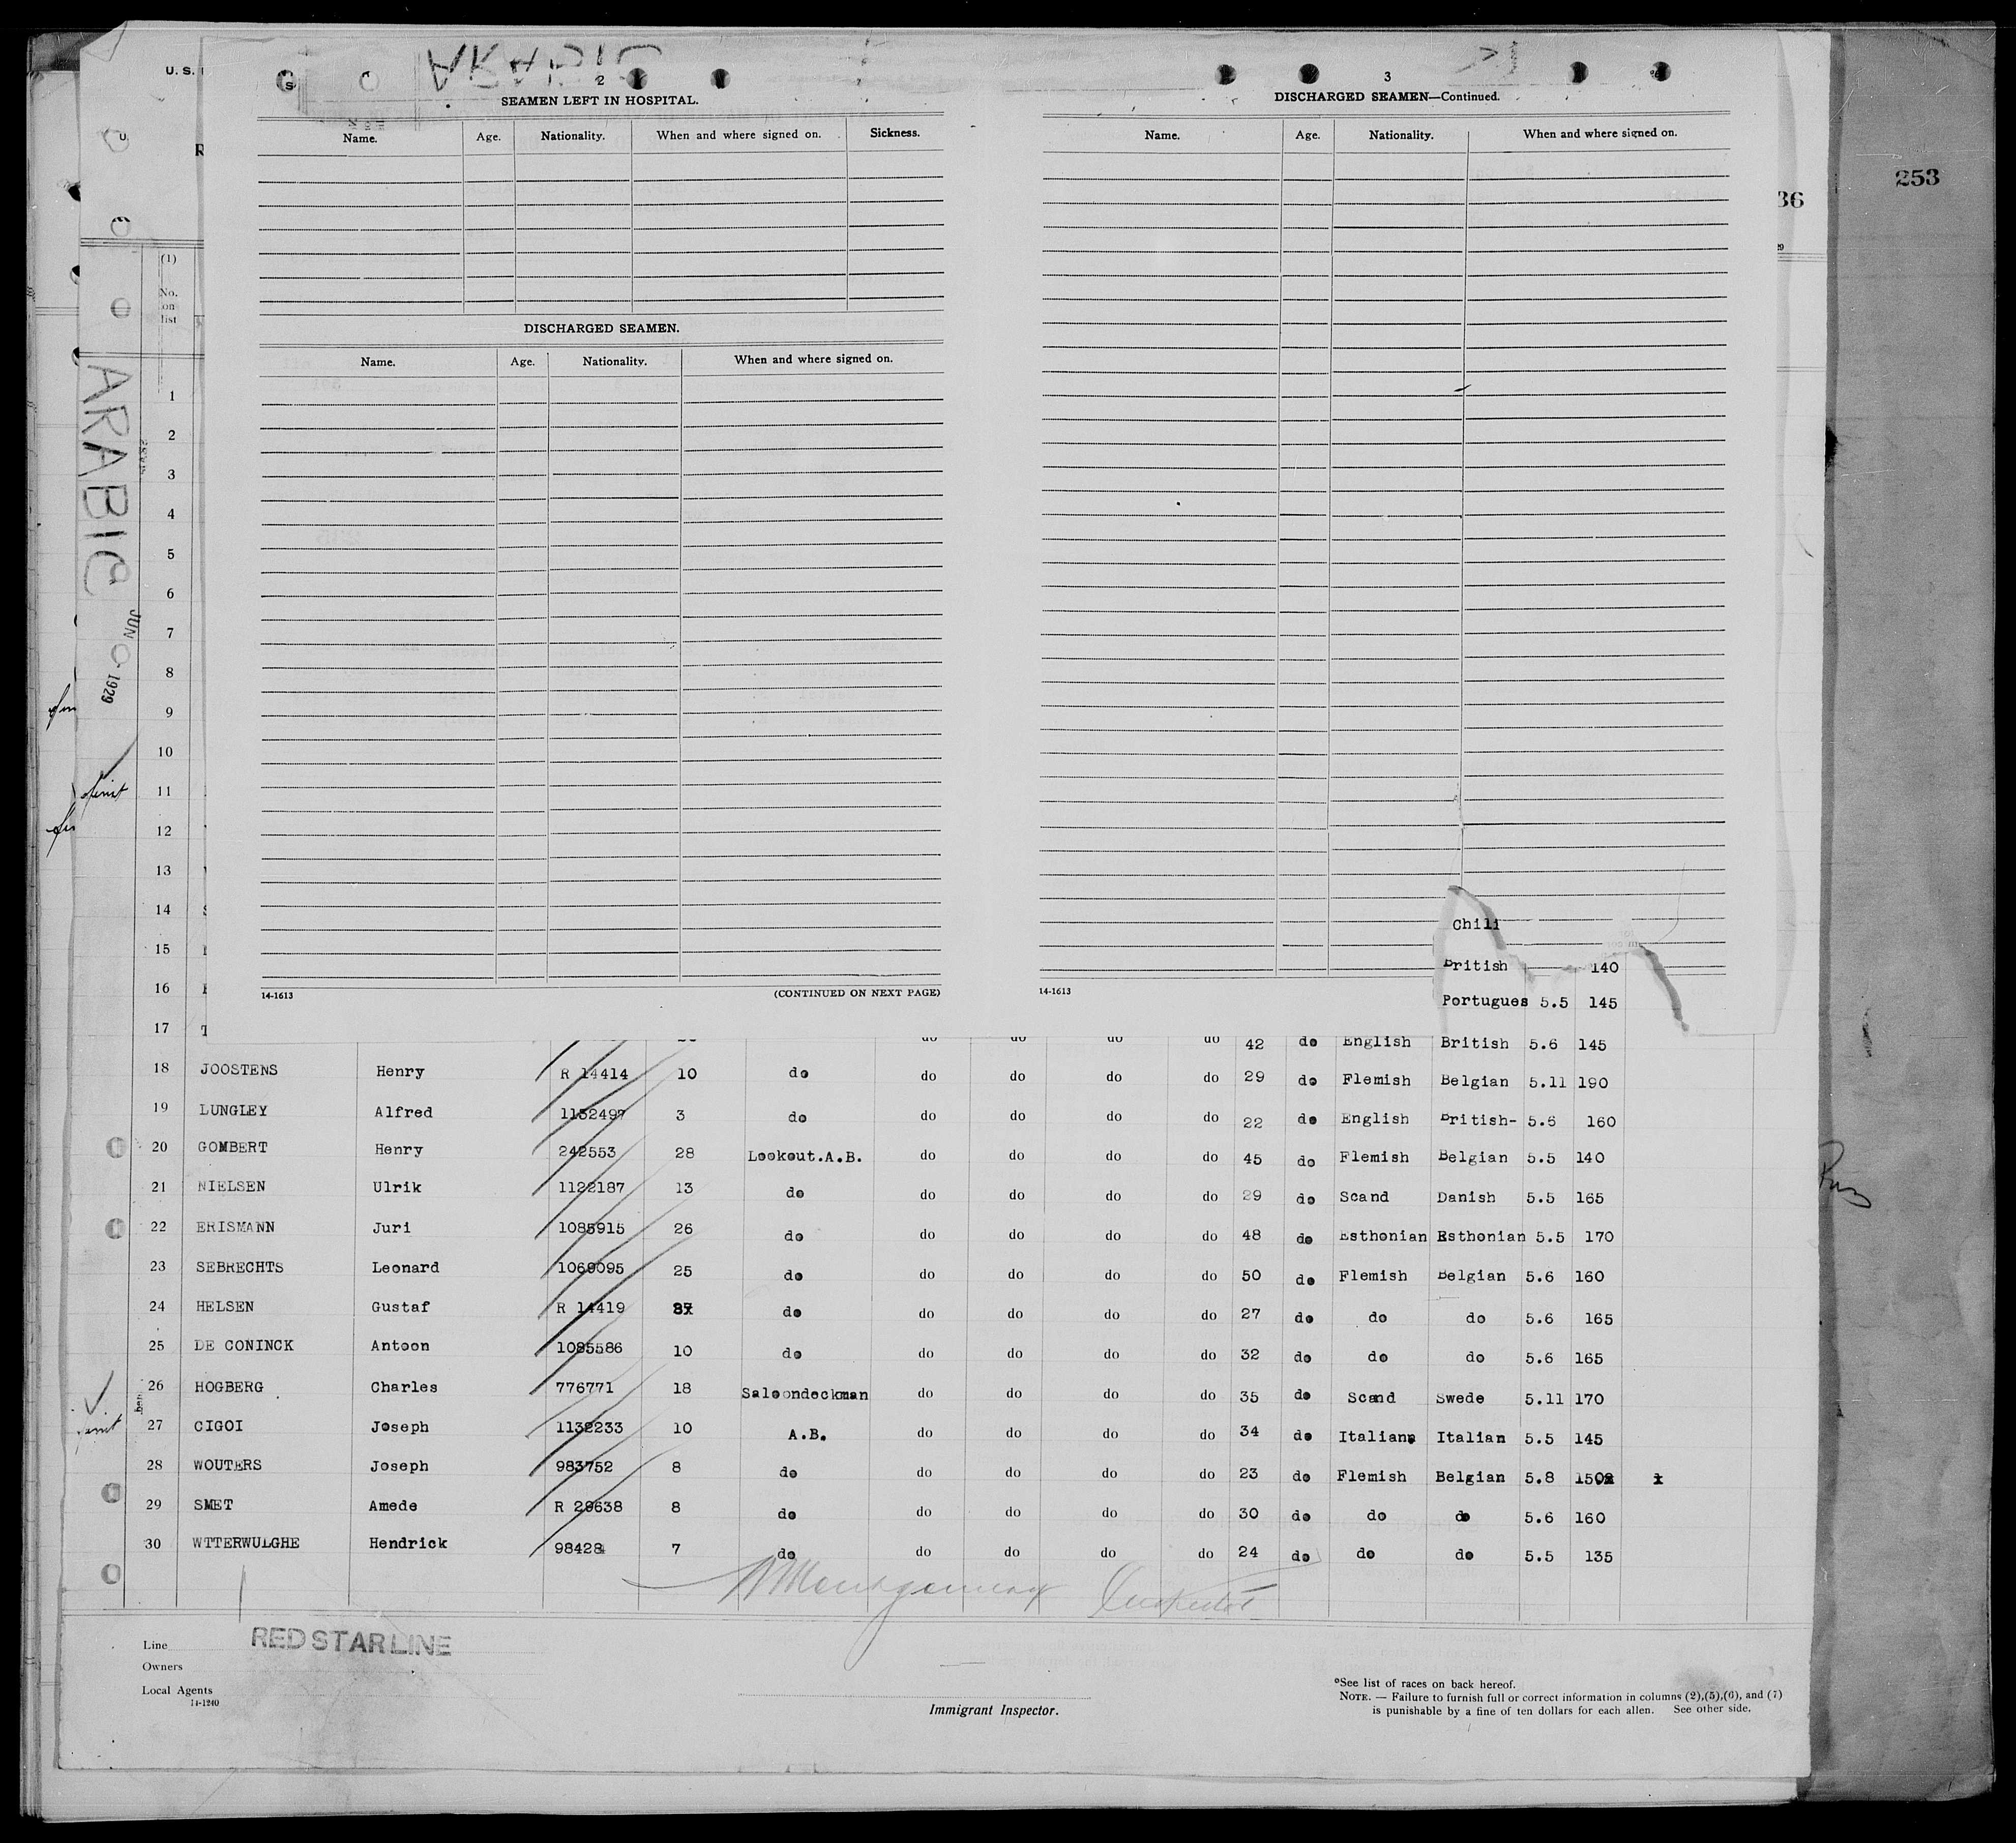 U. S.
2
SEAMEN LEFT IN HOSPITAL.
Name. Age. Nationality. When and where signed on. Sickness.
DISCHARGED SEAMEN.
Name. Age. Nationality. When and where signed on.
14-1613 (CONTINUED ON NEXT PAGE)
3
DISCHARGED SEAMEN—Continued.
Name. Age. Nationality. When and where signed on.
14-1613
36
253
ARABIC
JUN 1929
(1)
No.
on
list
1
2
3
4
5
6
7
8
9
10
11
12
13
14
15
16
17
Chili
British 140
Portugues 5.5 145
do do do do 42 do English British 5.6 145
18 JOOSTENS Henry R 14414 10 do do do do do 29 do Flemish Belgian 5.11 190
19 LUNGLEY Alfred 1132497 3 do do do do do 22 do English British- 5.6 160
20 GOMBERT Henry 242553 28 Lookout.A.B. do do do do 45 do Flemish Belgian 5.5 140
21 NIELSEN Ulrik 1122187 13 do do do do do 29 do Scand Danish 5.5 165
22 ERISMANN Juri 1085915 26 do do do do do 48 do Esthonian Esthonian 5.5 170
23 SEBRECHTS Leonard 1069095 25 do do do do do 50 do Flemish Belgian 5.6 160
24 HELSEN Gustaf R 14419 do do do do do 27 do do do 5.6 165
25 DE CONINCK Antoon 1085586 10 do do do do do 32 do do do 5.6 165
26 HOGBERG Charles 776771 18 Saloondeckman do do do do 35 do Scand Swede 5.11 170
27 CIGOI Joseph 1132233 10 A.B. do do do do 34 do Italian Italian 5.5 145
28 WOUTERS Joseph 983752 8 do do do do do 23 do Flemish Belgian 5.8 150
29 SMET Amede R 29638 8 do do do do do 30 do do do 5.6 160
30 WTTERWULGHE Hendrick 98428 7 do do do do do 24 do do do 5.5 135
Montgomery
Line RED STAR LINE
Owners
Local Agents
14-1240
Immigrant Inspector.
*See list of races on back hereof.
NOTE. — Failure to furnish full or correct information in columns (2),(5),(6), and (7)
is punishable by a fine of ten dollars for each alien. See other side.